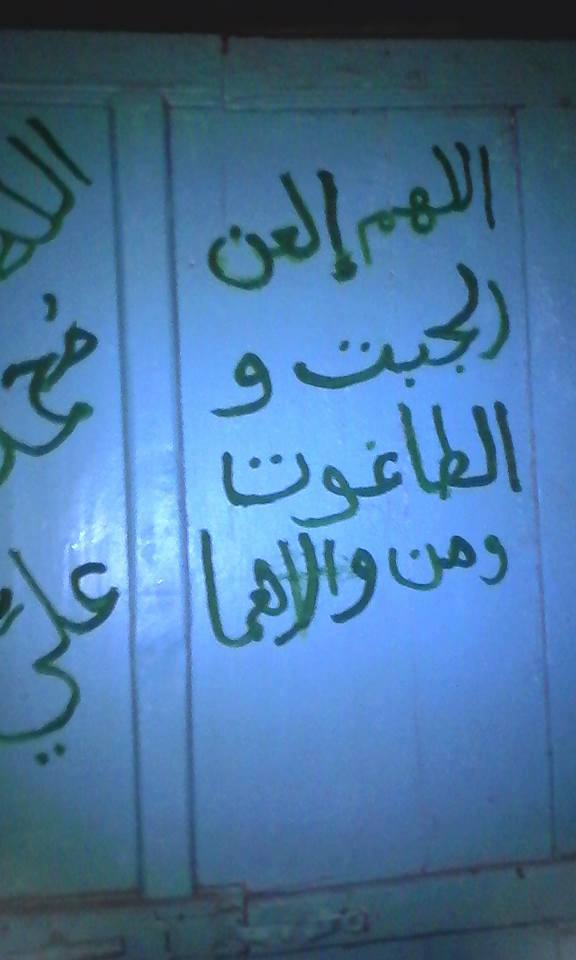 اللهم إلعن
الجبت و
الطاغوت
ومن والاهما
محمد
علي